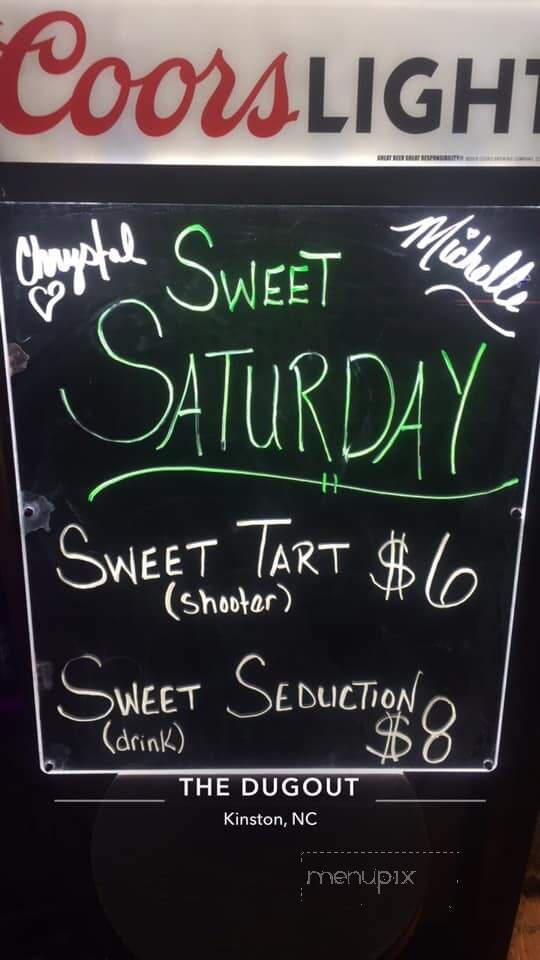 Coors LIGHT
GREAT BEER GREAT RESPONSIBILITY
Chrystal
Michelle
SWEET
SATURDAY
SWEET TART $6
(shooter)
SWEET SEDUCTION
(drink) $8
THE DUGOUT
Kinston, NC
menupix